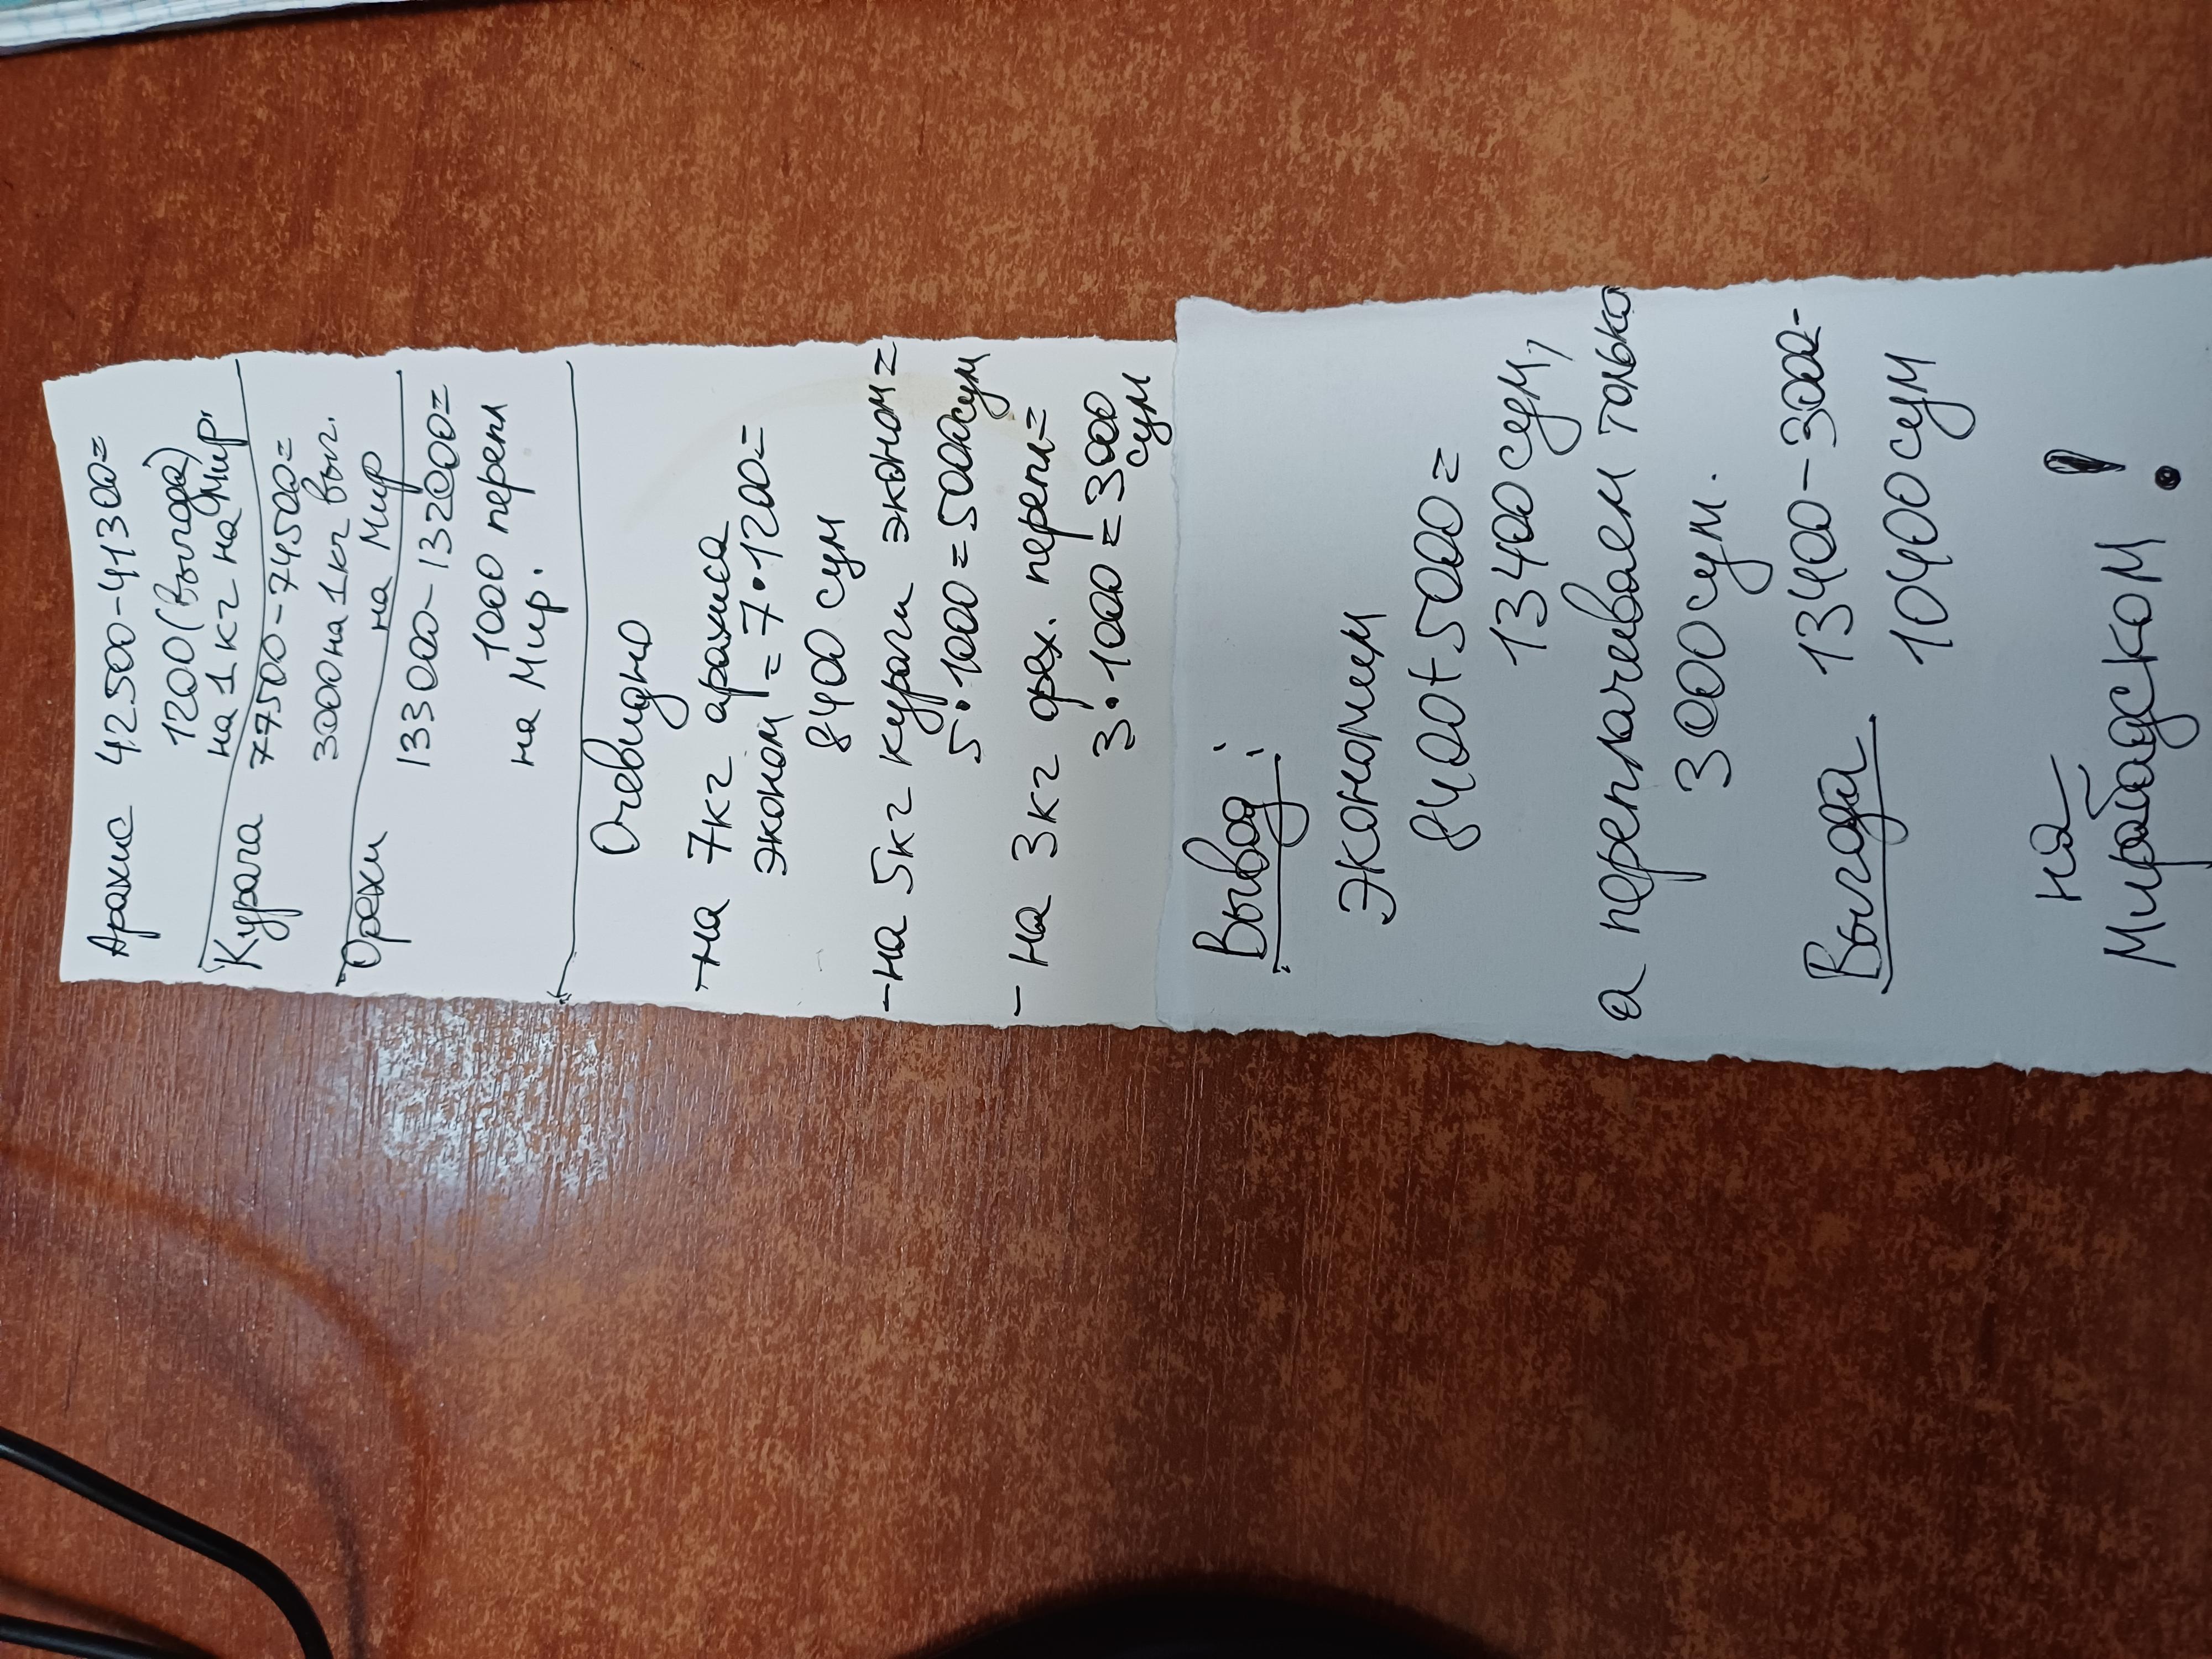 Арахис 42500-41300=
1200 (выгода)
на 1 кг на Мир.
Курага 77500-74500=
3000 на 1 кг выг.
на Мир
Орехи 133000-132000=
1000 перепл
на Мир.
Очевидно
-на 7кг арахиса
эконом = 7•1200=
8400 сум
-на 5кг кураги эконом=
5•1000=5000сум
- на 3кг орех. перепл=
3•1000=3000
сум
Вывод:
экономим
8400+5000=
13400 сум,
а переплачиваем только
3000 сум.
Выгода 13400-3000-
10400 сум
на
Мирабадском!